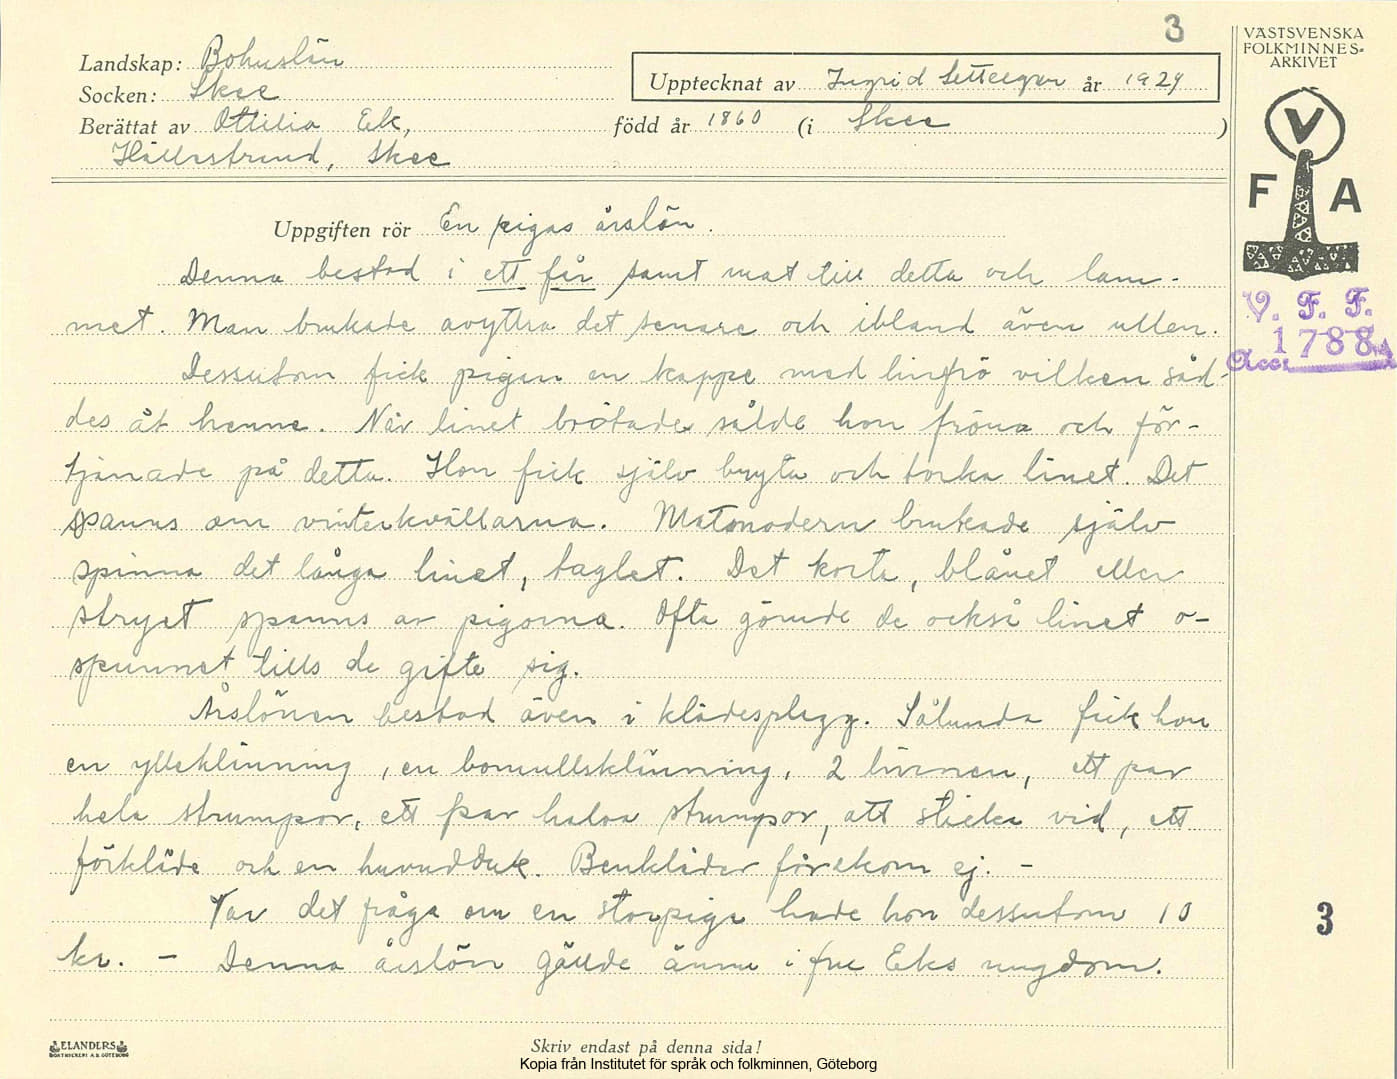 3
VÄSTSVENSKA
FOLKMINNES-
ARKIVET
Landskap: Bohuslän
Socken: Skee
Upptecknat av Ingrid år 1929
Berättat av Ottilia Ek, född år 1860 (i Skee )
Hällestrand, Skee
V
F A
Uppgiften rör En pigas årslön.
Denna bestod i ett får samt mat till detta och lam-
met. Man brukade avyttra det senare och ibland även ullen.
V. F. F.
Acc. 1788
Dessutom fick pigan en kappe med linfrö vilken såd-
des åt henne. När linet brötades sålde hon fröna och för-
tjänade på detta. Hon fick själv bryta och torka linet. Det
spanns om vinterkvällarna. Matmodern brukade själv
spinna det långa linet, taglet. Det korta, blånet eller
stryet spanns av pigorna. Ofta gömde de också linet o-
spunnet tills de gifte sig.
Årslönen bestod även i klädesplagg. Sålunda fick hon
en ylleklänning, en bomullsklänning, 2 linnen, ett par
hela strumpor, ett par halva strumpor, att sticka vid, ett
förkläde och en huvudduk. Benkläder förekom ej. -
Var det fråga om en storpiga hade hon dessutom 10
kr. - Denna årslön gällde ännu i fru Eks ungdom.
3
ELANDERS
BOKTRYCKERI A.B. GÖTEBORG
Skriv endast på denna sida!
Kopia från Institutet för språk och folkminnen, Göteborg